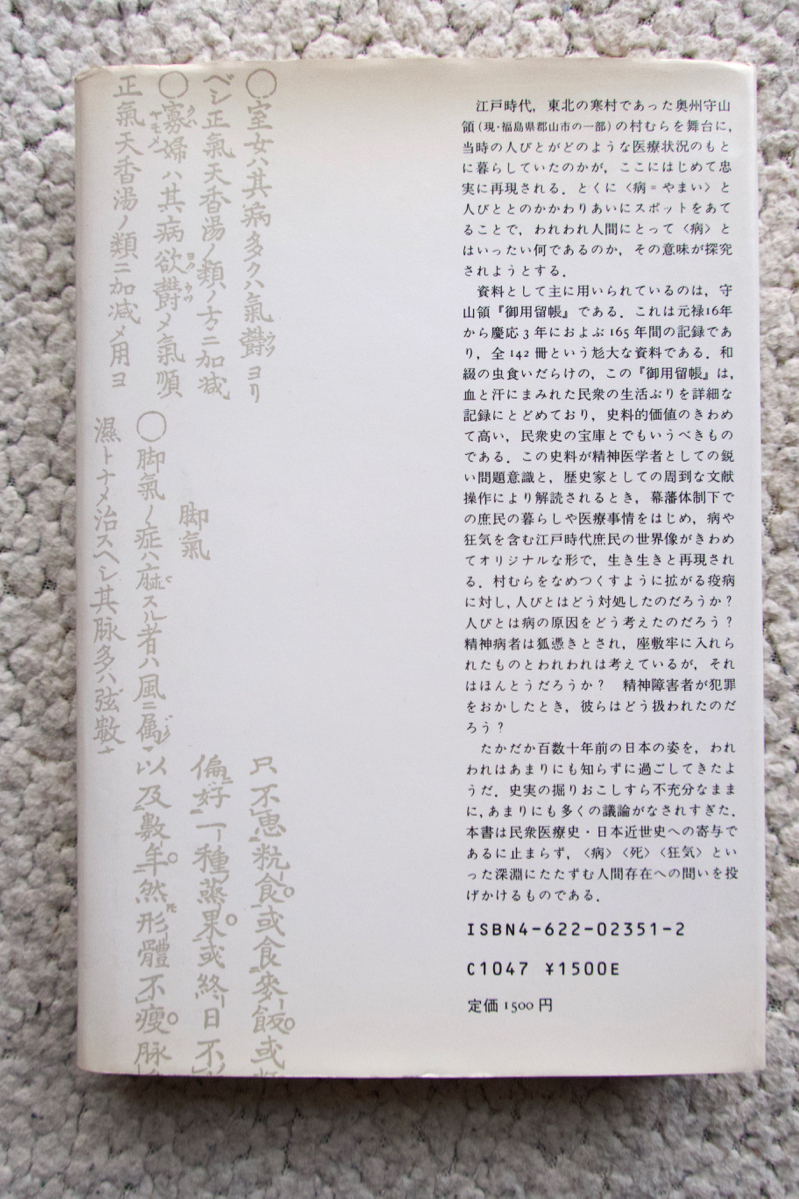 江戸時代，東北の寒村であった奥州守山
領（現・福島県郡山市の一部）の村むらを舞台に，
当時の人びとがどのような医療状況のもと
に暮らしていたのかが，ここにはじめて忠
実に再現される．とくに〈病＝やまい〉と
人びととのかかわりあいにスポットをあて
ることで，われわれ人間にとって〈病〉と
はいったい何であるのか，その意味が探究
されようとする．
資料として主に用いられているのは，守
山領『御用留帳』である．これは元禄16年
から慶応3年におよぶ165年間の記録であ
り，全142冊という尨大な資料である．和
綴の虫食いだらけの，この『御用留帳』は，
血と汗にまみれた民衆の生活ぶりを詳細な
記録にとどめており，史料的価値のきわめ
て高い，民衆史の宝庫とでもいうべきもの
である．この史料が精神医学者としての鋭
い問題意識と，歴史家としての周到な文献
操作により解読されるとき，幕藩体制下で
の庶民の暮らしや医療事情をはじめ，病や
狂気を含む江戸時代庶民の世界像がきわめ
てオリジナルな形で，生き生きと再現され
る．村むらをなめつくすように拡がる疫病
に対し，人びとはどう対処したのだろうか？
人びとは病の原因をどう考えたのだろう？
精神病者は狐憑きとされ，座敷牢に入れら
れたものとわれわれは考えているが，それ
はほんとうだろうか？　精神障害者が犯罪
をおかしたとき，彼らはどう扱われたのだ
ろう？
たかだか百数十年前の日本の姿を，われ
われはあまりにも知らずに過ごしてきたよ
うだ．史実の掘りおこしすら不充分なまま
に，あまりにも多くの議論がなされすぎた．
本書は民衆医療史・日本近世史への寄与で
あるに止まらず，〈病〉〈死〉〈狂気〉とい
った深淵にたたずむ人間存在への問いを投
げかけるものである．
ISBN4-622-02351-2
C1047 ¥1500E
定価1500円
〇室女ハ其病多クハ氣鬱ヨリ
ベシ正氣天香湯ノ類ノ方ニ加減
〇寡婦ハ其病欲鬱〆氣順
正氣天香湯ノ類ニ加減〆用ヨ
脚氣
〇脚氣ノ症ハ麻スル者ハ風ニ屬
濕トナ〆治スヘシ其脉多ハ弦數
只不恵粇食或食麥飯或
偏好一種蒸果或終日不
以及數年然形體不瘦脉